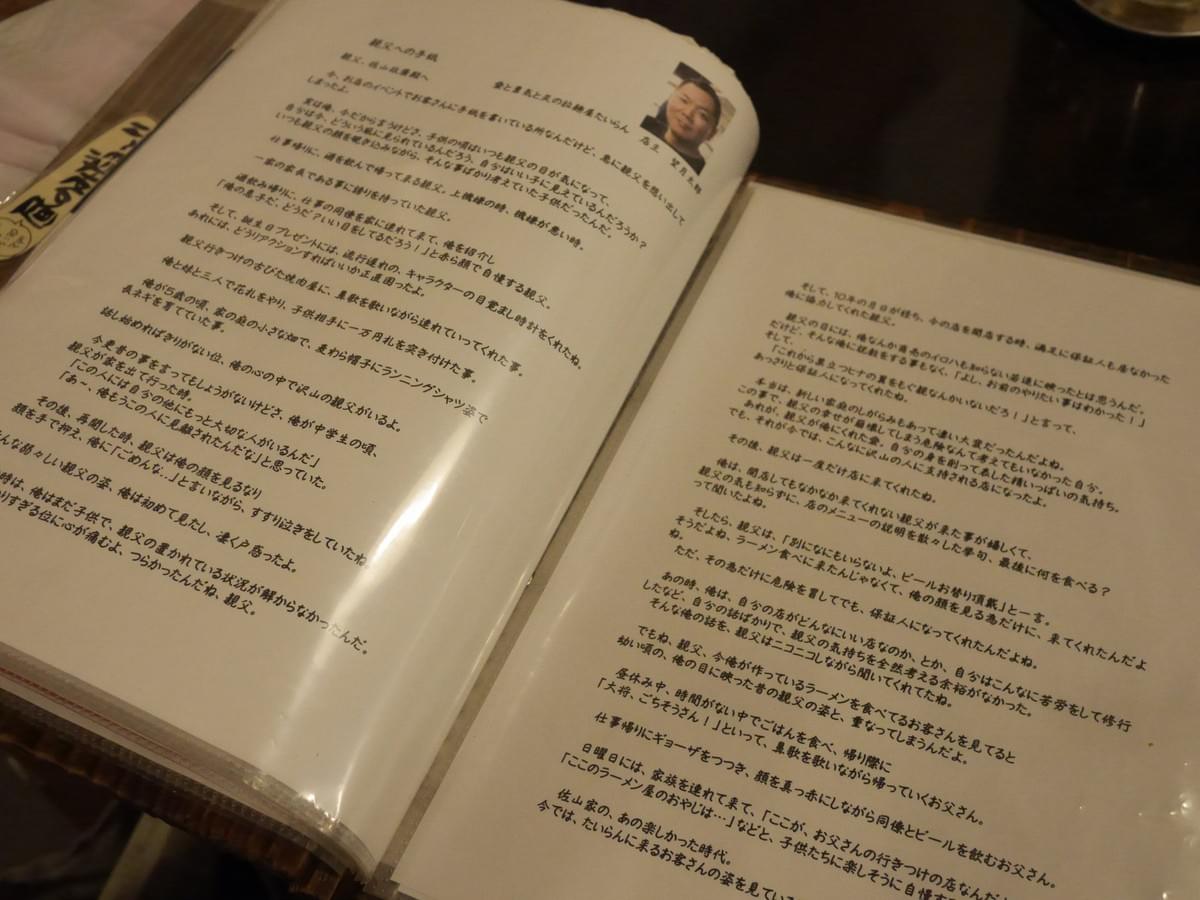 親父への手紙
親父、佐山
愛と勇気と正の拉麺屋たいらん 店主 望月太郎
今、お店のイベントでお客さんに手紙を書いている所なんだけど、急に親父を想い出して
しまったよ。
実は俺、今だから言うけどさ、子供の頃はいつも親父の目が気になって、
自分は今、どういう風に見られているんだろう、自分はいい子に見えているんだろうか?
いつも親父の顔を覗き込みながら、そんな事ばかり考えていた子供だったんだ。
仕事帰りに、酒を飲んで帰って来る親父。上機嫌の時、機嫌が悪い時。
一家の家長である事に誇りを持っていた親父。
酒飲み帰りに、仕事の同僚を家に連れて来て、俺を紹介し
「俺の息子だ、どうだ?いい目をしてるだろう!」と赤ら顔で自慢する親父。
そして、誕生日プレゼントには、流行遅れの、キャラクターの目覚まし時計をくれたね。
あれには、どうリアクションすればいいか正直困ったよ。
親父行きつけの古びた焼肉屋に、鼻歌を歌いながら連れていってくれた事。
俺と妹と三人で花札をやり、子供相手に一万円札を突き付けた事。
俺が5歳の頃、家の庭の小さな畑で、麦わら帽子にランニングシャツ姿で
長ネギを育てていた事。
話し始めればきりがない位、俺の心の中で沢山の親父がいるよ。
今更昔の事を言ってもしょうがないけどさ、俺が中学生の頃、
親父が家を出て行った時。
「この人には自分の他にもっと大切な人がいるんだ」
「あー、俺もうこの人に見離されたんだな」と思っていた。
その後、再開した時、親父は俺の顔を見るなり
顔を手で押え、俺に「ごめんな…」と言いながら、すすり泣きをしていたね。
んな弱々しい親父の姿、俺は初めて見たし、凄く戸惑ったよ。
時は、俺はまだ子供で、親父の置かれている状況が解からなかったんだ。
りすぎる位に心が痛むよ、つらかったんだね、親父。
そして、10年の月日が経ち、今の店を開店する時、満足に保証人も居なかった
俺に協力してくれた親父。
親父の目には、俺なんか商売のイロハも知らない若造に映ったとは思うんだ。
だけど、そんな俺に説教をする事もなく、「よし、お前のやりたい事はわかった!」
そして、
「これから巣立つヒナの翼をもぐ親なんかいないだろ!」と言って、
あっさりと保証人になってくれたね。
本当は、新しい家庭のしがらみもあって凄い大変だったんだよね。
この事で、親父の幸せが崩壊してしまう危険なんて考えてもいなかった自分。
あれが、親父が俺にくれた愛。自分の身を削って表した精いっぱいの気持ち。
でも、それが今では、こんなに沢山の人に支持される店になったよ。
その後、親父は一度だけ店に来てくれたね。
俺は、開店してもなかなか来てくれない親父が来た事が嬉しくて、
親父の気も知らずに、店のメニューの説明を散々した挙句、最後に何を食べる?
って聞いたよね。
そしたら、親父は、「別になにもいらないよ、ビールお替り頂戴」と一言。
そうだよね、ラーメン食べに来たんじゃなくて、俺の顔を見る為だけに、来てくれたんだよ
ね。
ただ、その為だけに危険を冒してでも、保証人になってくれたんだよね。
あの時、俺は、自分の店がどんなにいい店なのか、とか、自分はこんなに苦労をして修行
したなど、自分の話ばかりで、親父の気持ちを全然考える余裕がなかった。
そんな俺の話を、親父はニコニコしながら聞いてくれてたね。
でもね、親父、今俺が作っているラーメンを食べてるお客さんを見てると
幼い頃の、俺の目に映った昔の親父の姿と、重なってしまうんだよ。
昼休み中、時間がない中でごはんを食べ、帰り際に
「大将、ごちそうさん!」といって、鼻歌を歌いながら帰っていくお父さん。
仕事帰りにギョーザをつつき、顔を真っ赤にしながら同僚とビールを飲むお父さん。
日曜日には、家族を連れて来て、「ここが、お父さんの行きつけの店なんだ
「ここのラーメン屋のおやじは…」などと、子供たちに楽しそうに自慢す
佐山家の、あの楽しかった時代。
今では、たいらんに来るお客さんの姿を見てい